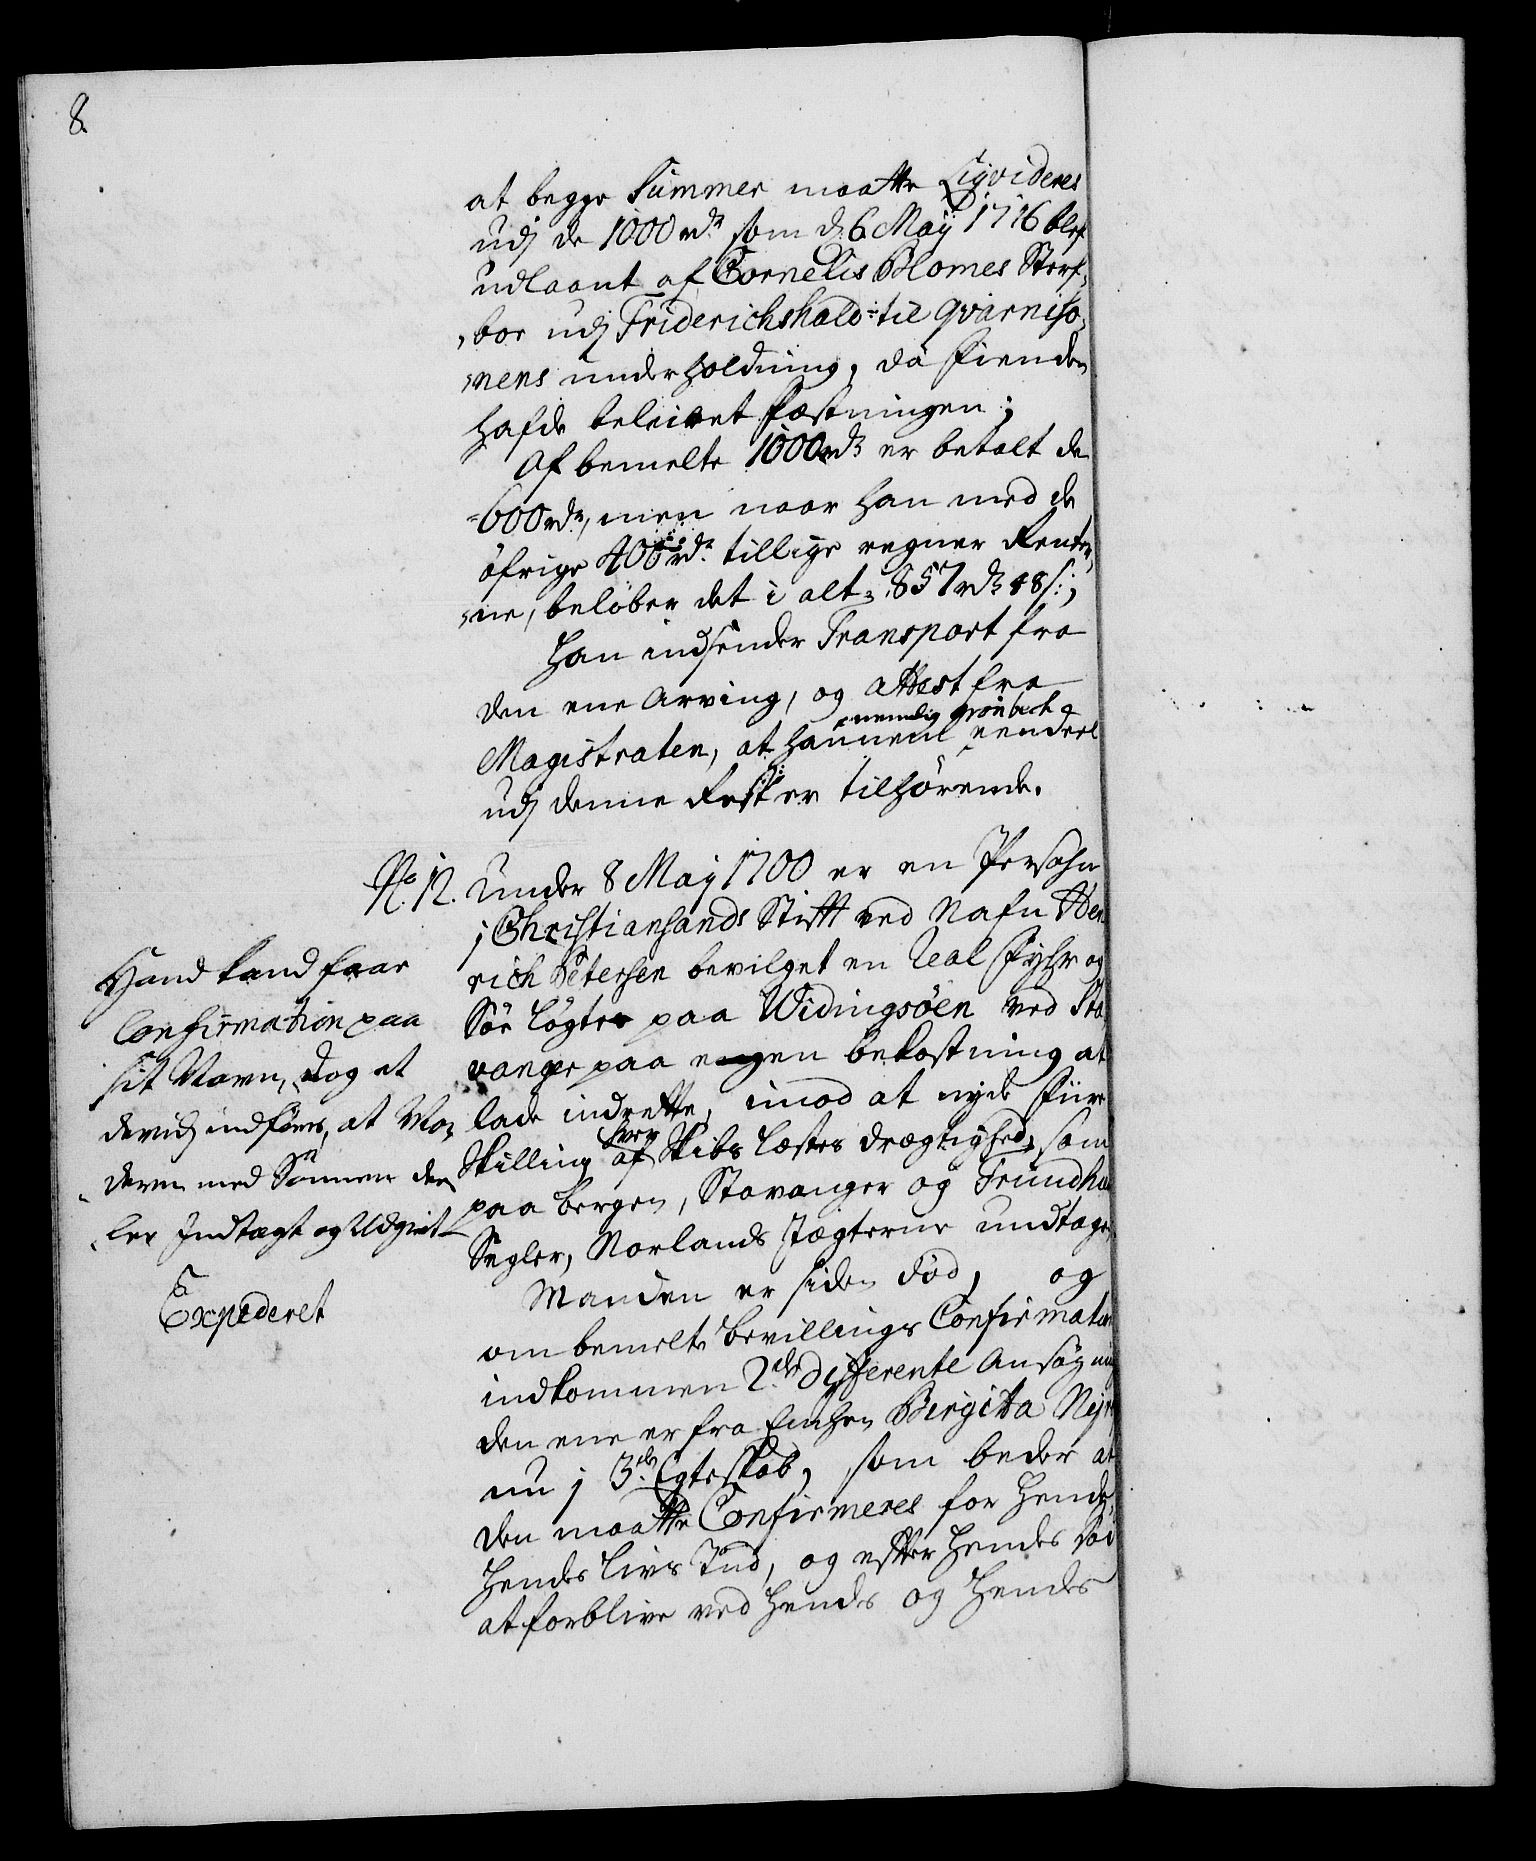 8.
at begge Summer maatte Liqvideres
udj de 1000 rdr som d. 6 Maÿ 1716 blef
udlaant af Cornelis Blomes Sterf,
,boe udj Friderichshald til qvarniso,
,nens underholdning, da fienden
hafde beleiret Fæstningen;
Af bemelte 1000 rdr er betalt de
600 rdr, men naar han med de
öfrige 400 rdr tillige regner Renter,
,ne, beløber det i alt 857 rdr 48 s:;
Han indsender Transport fra
den ene Arving, og attest fra
nemlig Grönbech
Magistraten, at hannem eendeel
udj denne Rest er tilhørende.
No. 12. Under 8 Maij 1700 er en Persohn
j Christiansands Stift ved Nafn Hen
rich Petersen bevilget en Real Fyhr og
Söe Løgte paa Widingsöen ved Sta
vanger paa egen bekostning at
lade indrette, imod at nyde Fiire
hver
Skilling af Skibs Læsters drægtighed, som
paa Bergen, Stavanger og Trundh
Segler, Norlands Jægterne undtagen
Manden er siden død, og
om bemelte bevillings Confirmation
indkommen 2de differente Ansøgning
den ene er fra Enchen Birgitta
nu j 3de Egteskab, som beder at
den maatte Confirmeres for hende,
hendes Livs Tiid, og efter hendes død
at forblive ved hendes og hendes
Hand kand faae
Confirmation paa
sit Navn, dog at
derudj indføres, at Mo,
deren med Sönnen dee,
,ler Indtægt og Udgivt
Expederet